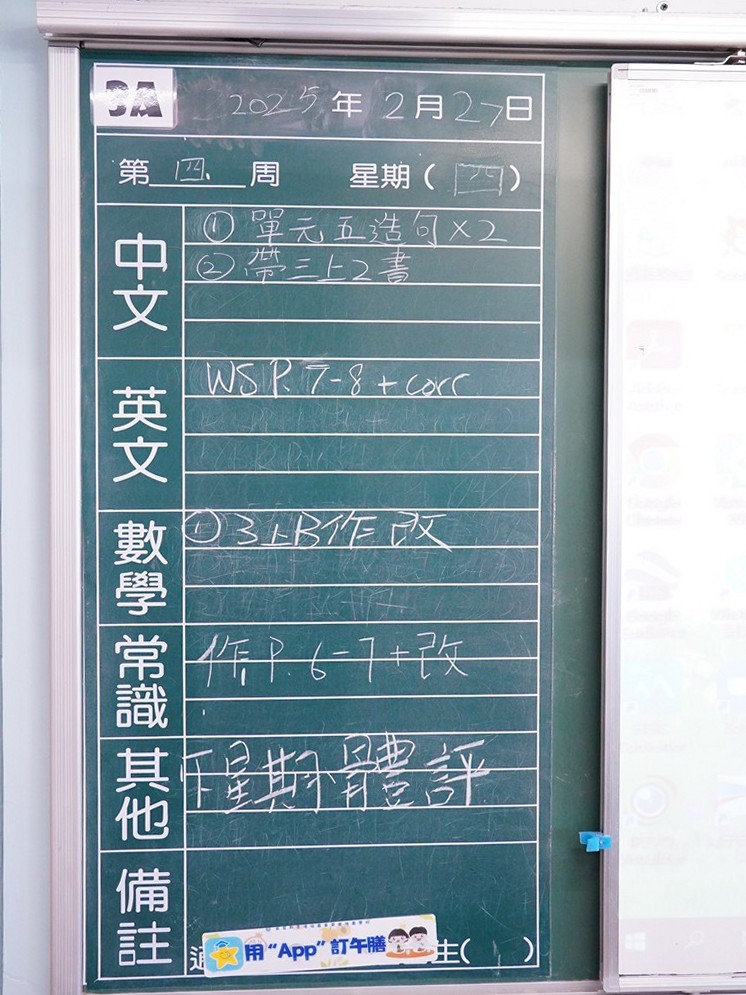 3A
2025年2月27日
第四周 星期(四)
中文
① 單元五造句×2
② 帶三上2書
英文
WS P. 7-8 + corr
數學
① 3上B作改
常識
作P. 6-7+改
其他
下星期小體評
備註
用“App”訂午膳
生( )